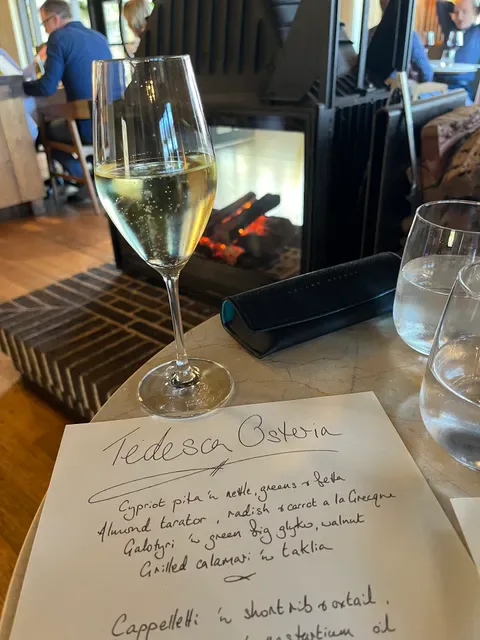 Tedesca Osteria
Cypriot pita 'n nettle, greens & fetta
Almond tarator, radish & carrot a la Grecque
Galotyri 'n green fig glyko, walnut
Grilled calamari 'n taklia
Cappelletti 'n short rib & oxtail,
'n nasturtium oil